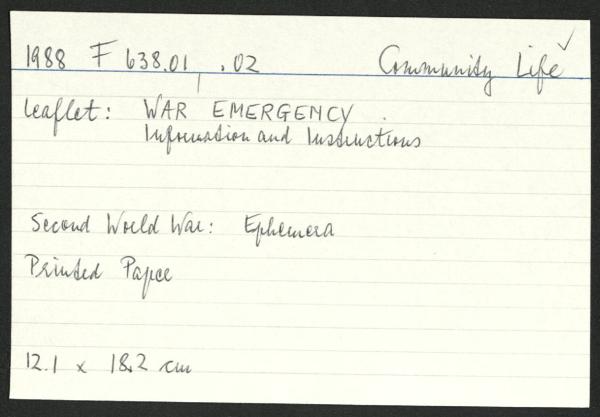 1988 F 638.01, .02 Community Life ✓
Leaflet: WAR EMERGENCY
Information and Instructions
Second World War: Ephemera
Printed Paper
12.1 x 18.2 cm